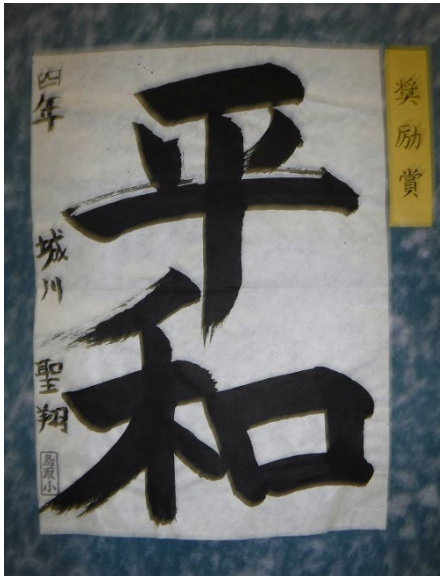 奨励賞
平和
四年 城川 聖翔
鳥取小